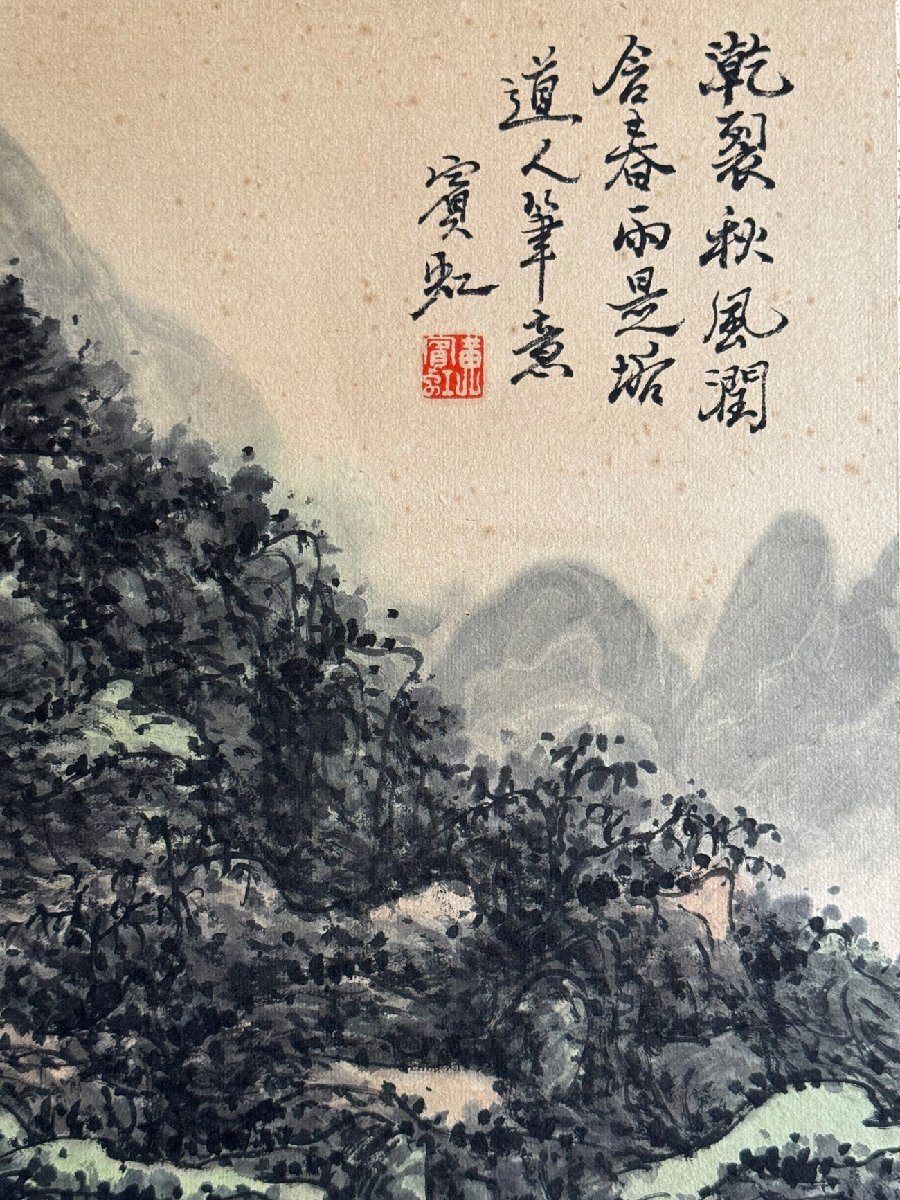 漧裂秋風潤
含春雨是垢
道人筆意
賓虹
黃山
賓虹